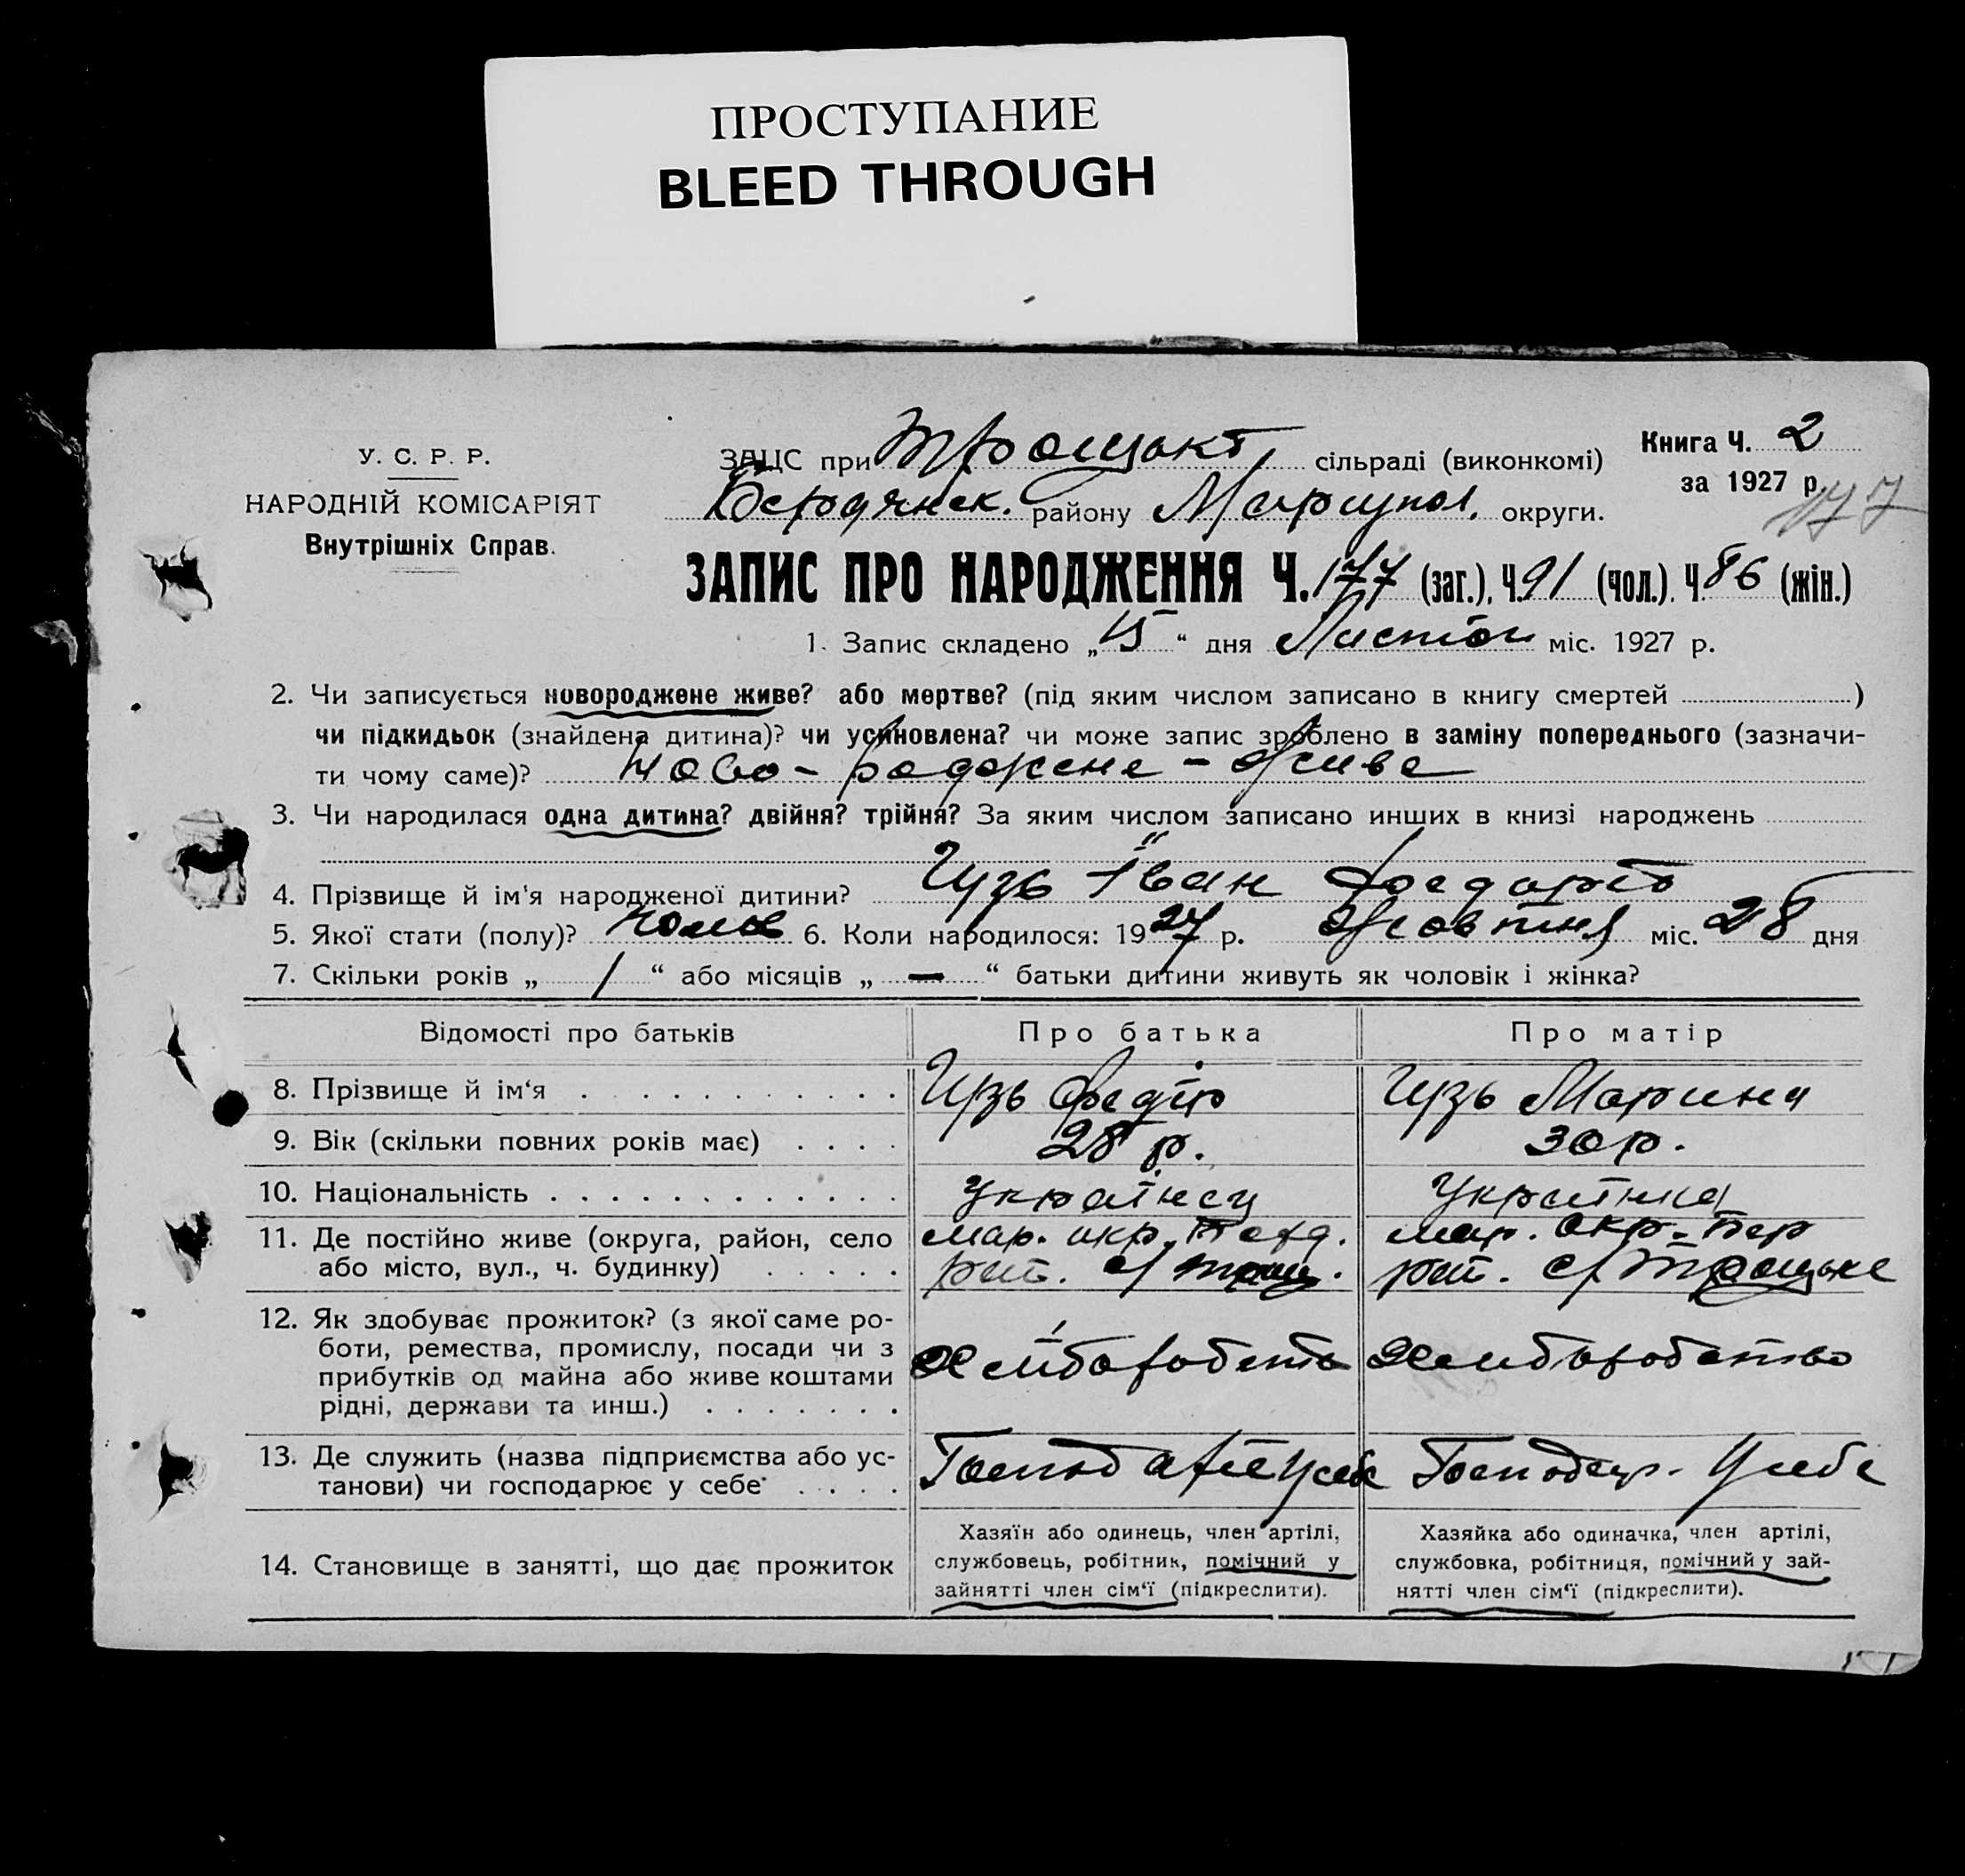 ПРОСТУПАНИЕ
BLEED THROUGH
У. С. Р. Р.
НАРОДНІЙ КОМІСАРІЯТ
Внутрішніх Справ.
ЗАЦС при Троцькі сільраді (виконкомі)
Бердянск. району Маріупол. округи.
Книга Ч. 2
за 1927 р.
177
ЗАПИС ПРО НАРОДЖЕННЯ Ч. 177 (заг.), Ч. 91 (чол.). Ч. 86 (жін.)
1. Запис складено „ 15 “ дня Листоп міс. 1927 р.
2. Чи записується новороджене живе? або мертве? (під яким числом записано в книгу смертей )
чи підкидьок (знайдена дитина)? чи усиновлена? чи може запис зроблено в заміну попереднього (зазначи-
ти чому саме)? Ново-роджене - живе
3. Чи народилася одна дитина? двійня? трійня? За яким числом записано инших в книзі народжень
4. Прізвище й ім'я народженої дитини? Гузь Іван
5. Якої статі (полу)? чолов 6. Коли народилося: 1927 р. Жовтня міс. 28 дня
7. Скільки років „ 1 “ або місяців „ — “ батьки дитини живуть як чоловік і жінка?
Відомості про батьків Про батька Про матір
8. Прізвище й ім‘я Гузь Федір Гузь Марина
9. Вік (скільки повних років має) 28 р. 30 р.
10. Національність Українец Українка
11. Де постійно живе (округа, район, село Мар. окр. Берд. Мар. окр. Бер
або місто, вул., ч. будинку) рай. с/Троц. рай. с/Троцьке
12. Як здобуває прожиток? (з якої саме ро-
боти, ремества, промислу, посади чи з Хліборобств Хліборобство
прибутків од майна або живе коштами
рідні, держави та инш.)
13. Де служить (назва підприємства або ус- Господарює у себе Господар. у себе
танови) чи господарює у себе
14. Становище в занятті, що дає прожиток
Хазяїн або одинець, член артілі,
службовець, робітник, помічний у
зайнятті член сім‘ї (підкреслити).
Хазяйка або одиначка, член артілі,
службовка, робітниця, помічний у зай-
нятті член сім‘ї (підкреслити).